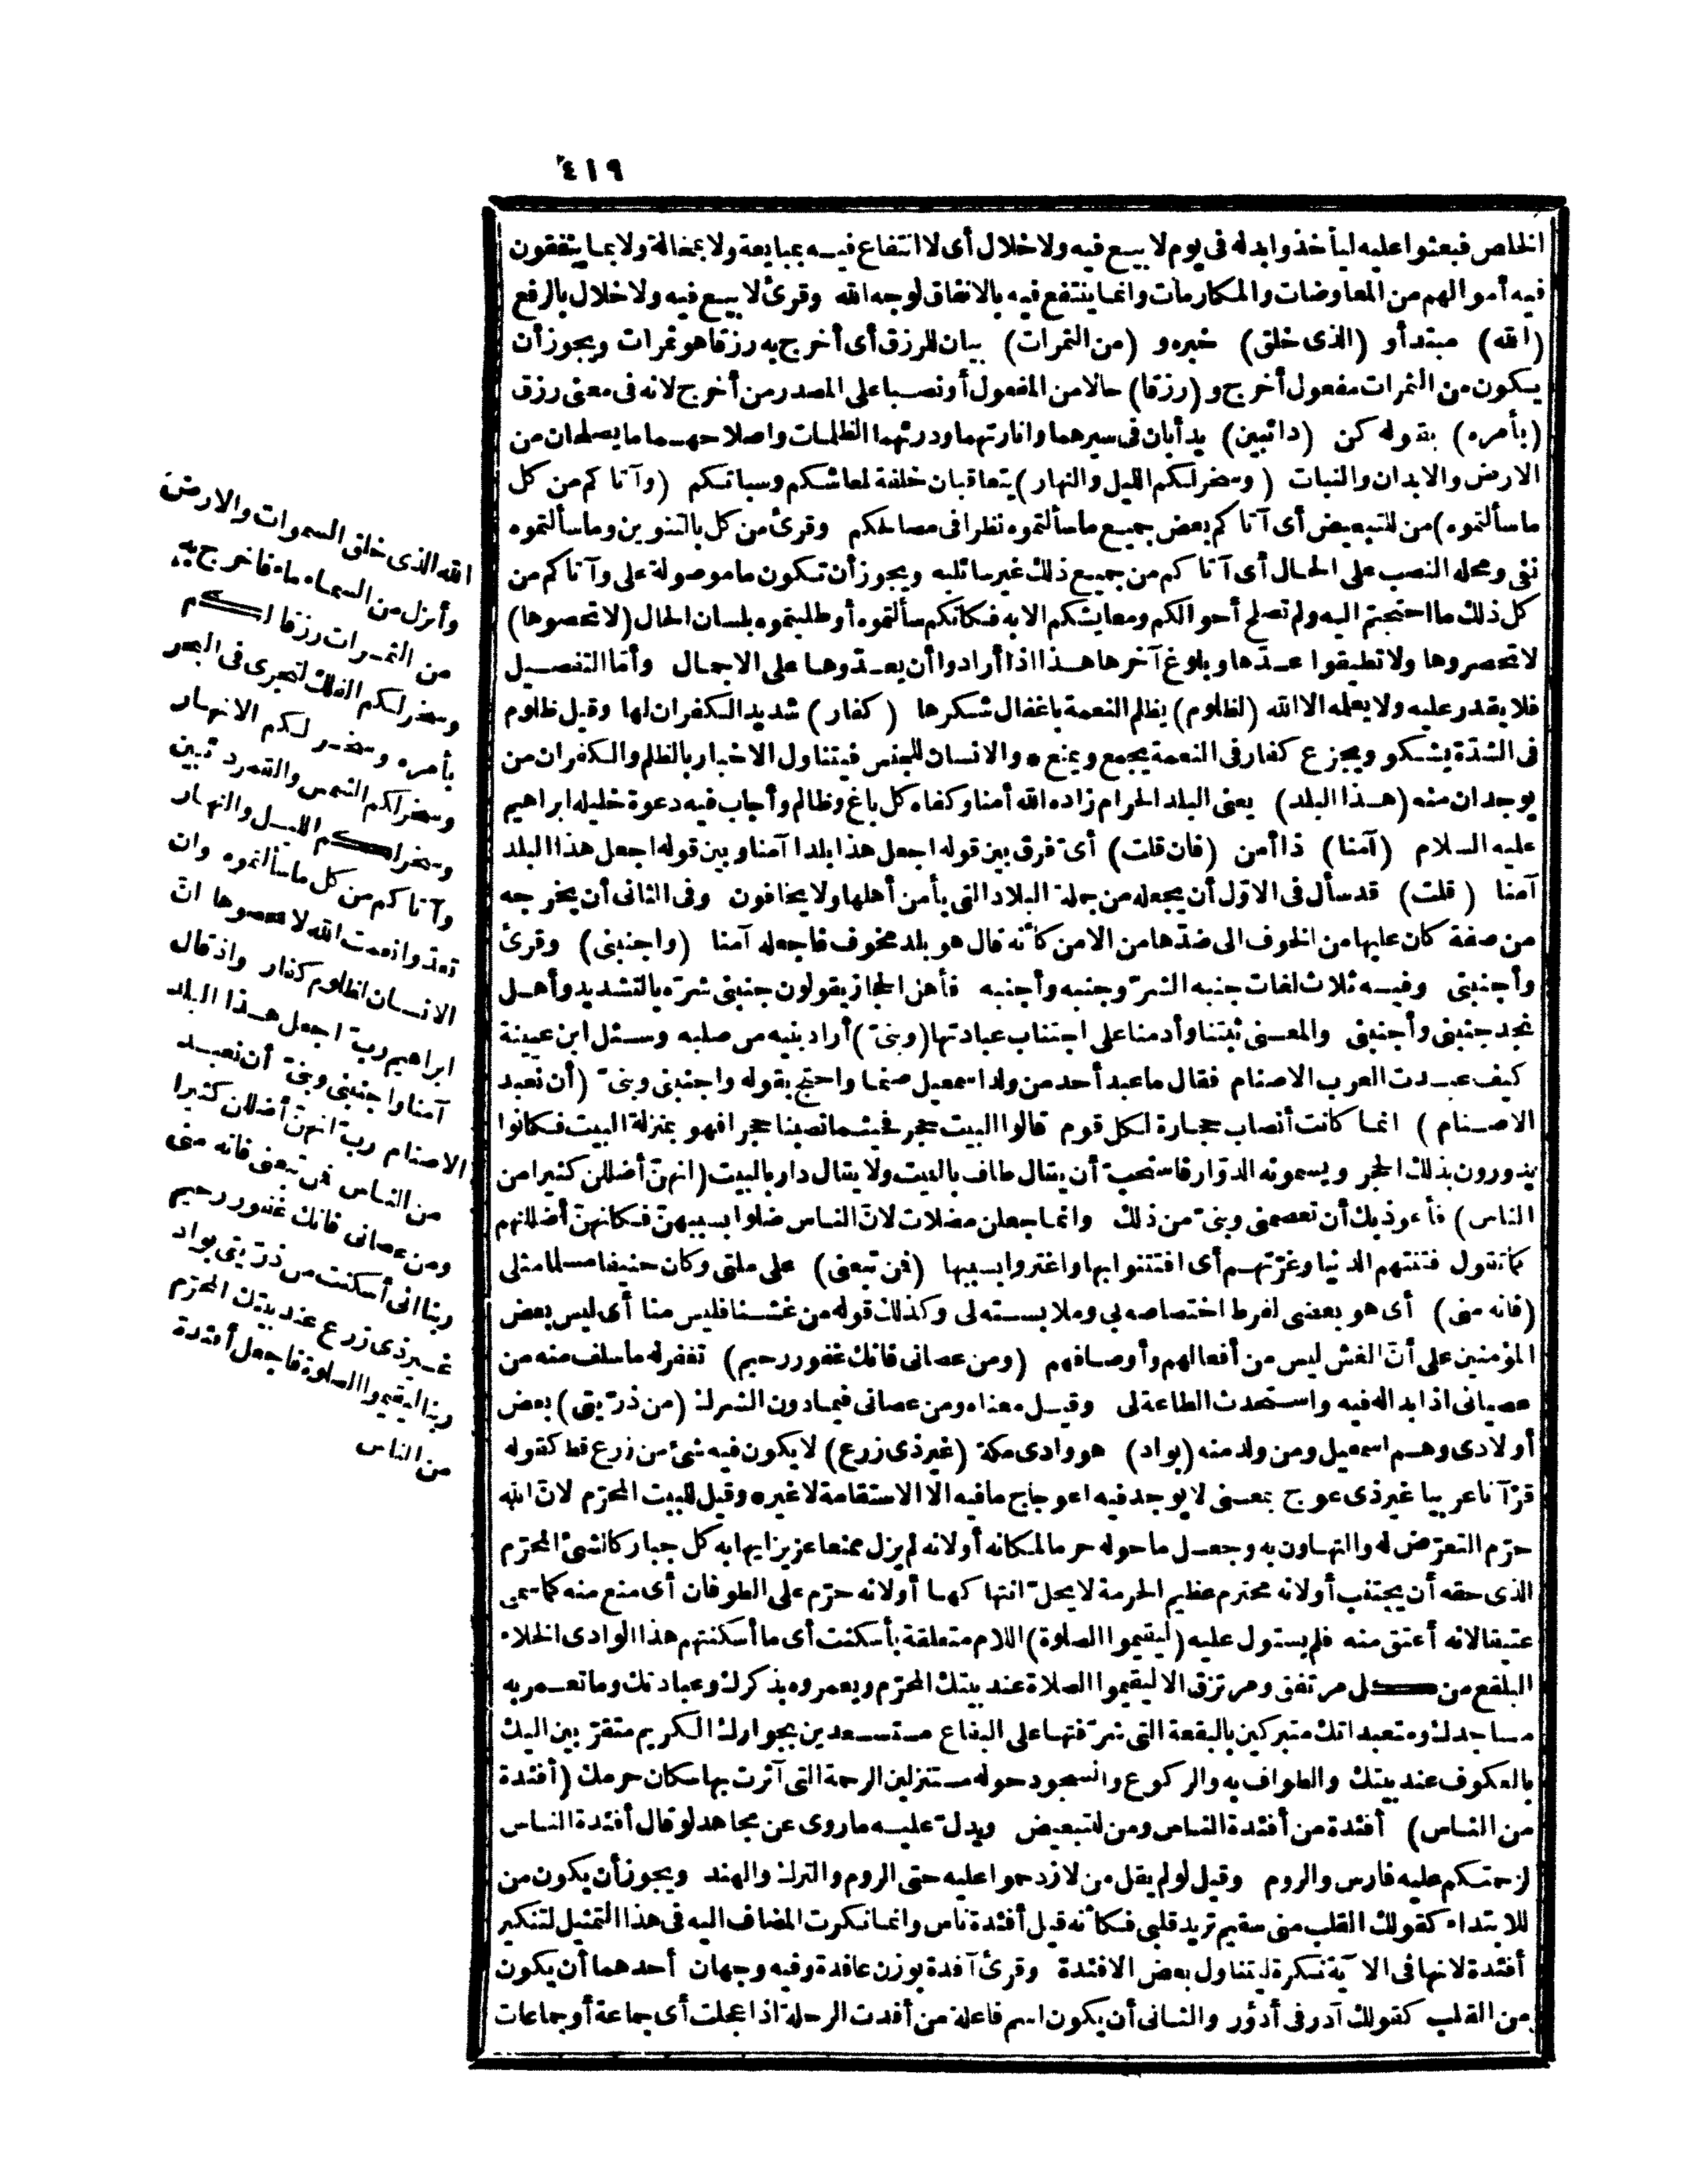 ٤١٩
الخاص فبعثوا عليه ليأخذوا بدله فى يوم لا بيع فيه ولا خلال أى لا انتفاع فيه بمبايعة ولا بمخالة ولا بما ينفقون
فيه أموالهم من المعاوضات والمكارمات وانما ينتفع فيه بالانفاق لوجه الله وقرئ لا بيع فيه ولا خلال بالرفع
(الله) مبتدأ و (الذى خلق) خبره و (من الثمرات) بيان للرزق أى أخرج به رزقا هو ثمرات ويجوز أن
يكون من الثمرات مفعول أخرج و (رزقا) حالا من المفعول أو نصبا على المصدر من أخرج لانه فى معنى رزق
(بأمره) بقوله كن (دائبين) يدأبان فى سيرهما وانارتهما ودرئهما الظلمات واصلاحهما ما يصلحان من
الارض والابدان والنبات (وسخر لكم الليل والنهار) يتعاقبان خلفة لمعاشكم وسباتكم (وآتاكم من كل
ما سألتموه) من للتبعيض أى آتاكم بعض جميع ما سألتموه نظرا فى مصالحكم وقرئ من كل بالتنوين وما سألتموه
نفى ومحله النصب على الحال أى آتاكم من جميع ذلك غير سائليه ويجوز أن تكون ما موصولة على وآتاكم من
كل ذلك ما احتجتم اليه ولم تصلح أحوالكم ومعايشكم الا به فكانكم سألتموه أو طلبتموه بلسان الحال (لا تحصوها)
لا تحصروها ولا تطيقوا عدّها وبلوغ آخرها هذا اذا أرادوا أن يعدّوها على الاجمال وأمّا التفصيل
فلا يقدر عليه ولا يعلمه الا الله (لظلوم) يظلم النعمة باغفال شكرها (كفار) شديد الكفران لها وقيل ظلوم
فى الشدّة يشكو ويجزع كفار فى النعمة يجمع ويمنع * والانسان للجنس فيتناول الاخبار بالظلم والكفران من
يوجدان منه (هذا البلد) يعنى البلد الحرام زاده الله أمنا وكفاه كل باغ وظالم وأجاب فيه دعوة خليله ابراهيم
عليه السلام (آمنا) ذا أمن (فان قلت) أىّ فرق بين قوله اجعل هذا بلدا آمنا وبين قوله اجعل هذا البلد
آمنا (قلت) قد سأل فى الاوّل أن يجعله من جملة البلاد التى يأمن أهلها ولا يخافون وفى الثانى أن يخرجه
من صفة كان عليها من الخوف الى ضدّها من الامن كأنه قال هو بلد مخوف فاجعله آمنا (واجنبنى) وقرئ
وأجنبنى وفيه ثلاث لغات جنبه الشرّ وجنبه وأجنبه فأهل الحجاز يقولون جنبنى شرّه بالتشديد وأهل
نجد جنبنى وأجنبنى والمعنى ثبتنا وأدمنا على اجتناب عبادتها (وبنىّ) أراد بنيه من صلبه وسئل ابن عيينة
كيف عبدت العرب الاصنام فقال ما عبد أحد من ولد اسمعيل صنما واحتج بقوله واجنبنى وبنىّ (أن نعبد
الاصنام) انما كانت أنصاب حجارة لكل قوم قالوا البيت حجر فحيثما نصبنا حجرا فهو بمنزلة البيت فكانوا
يدورون بذلك الحجر ويسمونه الدوّار فاستحبّ أن يقال طاف بالبيت ولا يقال دار بالبيت (انهنّ أضللن كثيرا من
الناس) فأعوذ بك أن تعصمنى وبنىّ من ذلك وانما جعلن مضلات لانّ الناس ضلوا بسببهنّ فكانهنّ أضللنهم
كما تقول فتنتهم الدنيا وغرّتهم أى افتتنوا بها واغتروا بسببها (فمن تبعنى) على ملتى وكان حنيفا مسلما مثلى
(فانه منى) أى هو بعضى لفرط اختصاصه بى وملابسته لى وكذلك قوله من غشنا فليس منا أى ليس بعض
المؤمنين على أنّ الغش ليس من أفعالهم وأوصافهم (ومن عصانى فانك غفور رحيم) تغفر له ما سلف منه من
عصيانى اذا بدا له فيه واستحدث الطاعة لى وقيل معناه ومن عصانى فيما دون الشرك (من ذرّيتى) بعض
أولادى وهم اسمعيل ومن ولد منه (بواد) هو وادى مكة (غير ذى زرع) لا يكون فيه شئ من زرع قط كقوله
قرآنا عربيا غير ذى عوج بمعنى لا يوجد فيه اعوجاج ما فيه الا الاستقامة لا غيره وقيل للبيت المحرّم لانّ الله
حرّم التعرّض له والتهاون به وجعل ما حوله حرما لمكانه أولانه لم يزل ممنعا عزيزا يهابه كل جبار كالشئ المحرّم
الذى حقه أن يجتنب أولانه محترم عظيم الحرمة لا يحلّ انتهاكها أولانه حرّم على الطوفان أى منع منه كما سمى
عتيقا لانه أعتق منه فلم يستول عليه (ليقيموا الصلوة) اللام متعلقة بأسكنت أى ما أسكنتهم هذا الوادى الخلاء
البلقع من كل مرتفق ومرتزق الا ليقيموا الصلاة عند بيتك المحرّم ويعمروه بذكرك وعبادتك وما تعمر به
مساجدك ومتعبداتك متبركين بالبقعة التى شرّفتها على البقاع مستسعدين بجوارك الكريم متقرّبين اليك
بالعكوف عند بيتك والطواف به والركوع والسجود حوله مستنزلين الرحمة التى آثرت بها سكان حرمك (أفئدة
من الناس) أفئدة من أفئدة الناس ومن للتبعيض ويدلّ عليه ما روى عن مجاهد لو قال أفئدة الناس
لزحمتكم عليه فارس والروم وقيل لو لم يقل من لازدحموا عليه حتى الروم والترك والهند ويجوز أن يكون من
للابتداء كقولك القلب منى سقيم تريد قلبى فكأنه قيل أفئدة ناس وانما نكرت المضاف اليه فى هذا التمثيل لتنكير
أفئدة لانها فى الآية نكرة ليتناول بعض الافئدة وقرئ آفدة بوزن عافدة وفيه وجهان أحدهما أن يكون
من القلب كقولك آدر فى أدؤر والثانى أن يكون اسم فاعلة من أفدت الرحلة اذا عجلت أى جماعة أو جماعات
الله الذى خلق السموات والارض
وأنزل من السماء ماء فاخرج به
من الثمرات رزقا لكم
وسخر لكم الفلك لتجرى فى البحر
بأمره وسخر لكم الانهار
وسخر لكم الشمس والقمر دائبين
وسخر لكم الليل والنهار
وآتاكم من كل ما سألتموه وان
تعدّوا نعمت الله لا تحصوها انّ
الانسان لظلوم كفار واذ قال
ابراهيم ربّ اجعل هذا البلد
آمنا واجنبنى وبنىّ أن نعبد
الاصنام ربّ انهنّ أضللن كثيرا
من الناس فمن تبعنى فانه منى
ومن عصانى فانك غفور رحيم
ربنا انى أسكنت من ذرّيتى بواد
غير ذى زرع عند بيتك المحرّم
ربنا ليقيموا الصلوة فاجعل أفئدة
من الناس